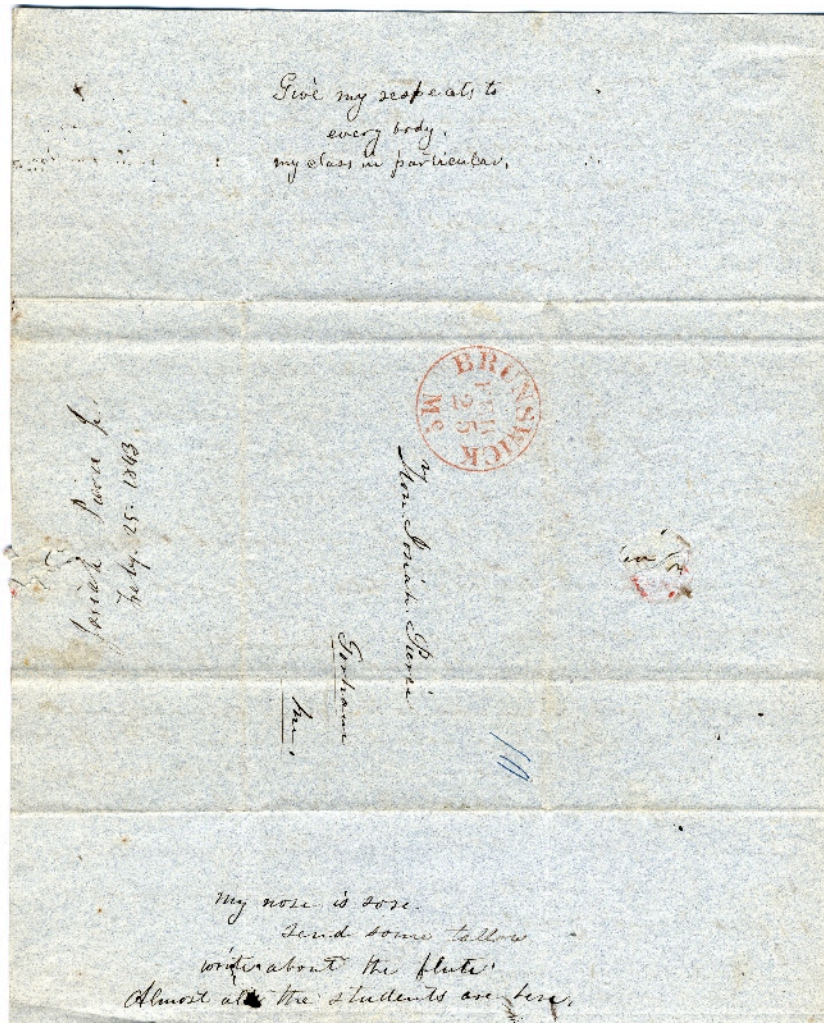 Give my respects to
every body.
my class in particular.
BRUNSWICK
FEB
25
Me
Josiah Pierce Jr.
Feby. 25. 1843
Hon. Josiah Pierce
Gorham
Me.
10
My nose is sore.
Send some tallow
write about the flute
Almost all the students are here.